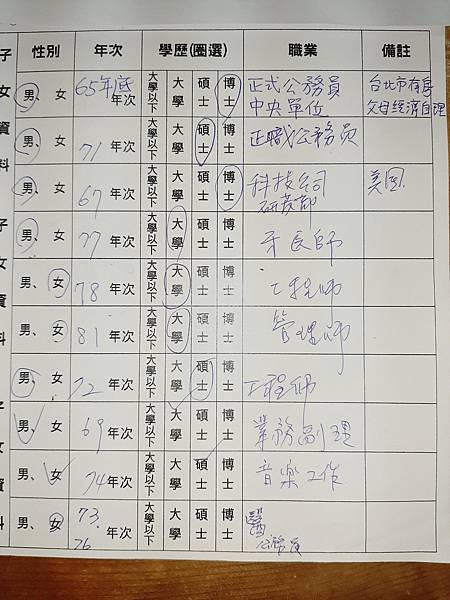 子女資料
性別 年次 學歷(圈選) 職業 備註
男、女 65年底 年次 大學以下 大學 碩士 博士 正式公務員 中央單位 台北市有房 父母經濟自理
男、女 71 年次 大學以下 大學 碩士 博士 正職公務員
男、女 67 年次 大學以下 大學 碩士 博士 科技公司 研發部 美國
子女資料
男、女 77 年次 大學以下 大學 碩士 博士 牙醫師
男、女 78 年次 大學以下 大學 碩士 博士 工程師
男、女 81 年次 大學以下 大學 碩士 博士 管理師
男、女 72 年次 大學以下 大學 碩士 博士 工程師
子女資料
男、女 69 年次 大學以下 大學 碩士 博士 業務副理
男、女 74 年次 大學以下 大學 碩士 博士 音樂工作
男、女 73. 76 年次 大學以下 大學 碩士 博士 醫 公務員